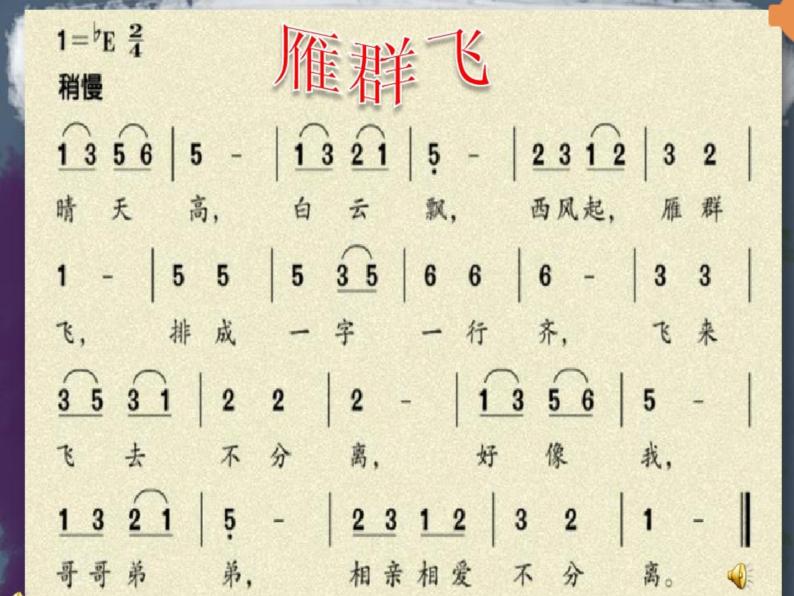 雁群飞
1=♭E 2/4
稍慢
1 3 5 6 | 5 - | 1 3 2 1 | 5̣ - | 2 3 1 2 | 3 2 |
晴 天 高， 白 云 飘， 西风起， 雁 群
1 - | 5 5 | 5 3 5 | 6 6 | 6 - | 3 3 |
飞， 排 成 一 字 一 行 齐， 飞 来
3 5 3 1 | 2 2 | 2 - | 1 3 5 6 | 5 - |
飞 去 不 分 离， 好 像 我，
1 3 2 1 | 5̣ - | 2 3 1 2 | 3 2 | 1 - ‖
哥 哥 弟 弟， 相 亲 相 爱 不 分 离。